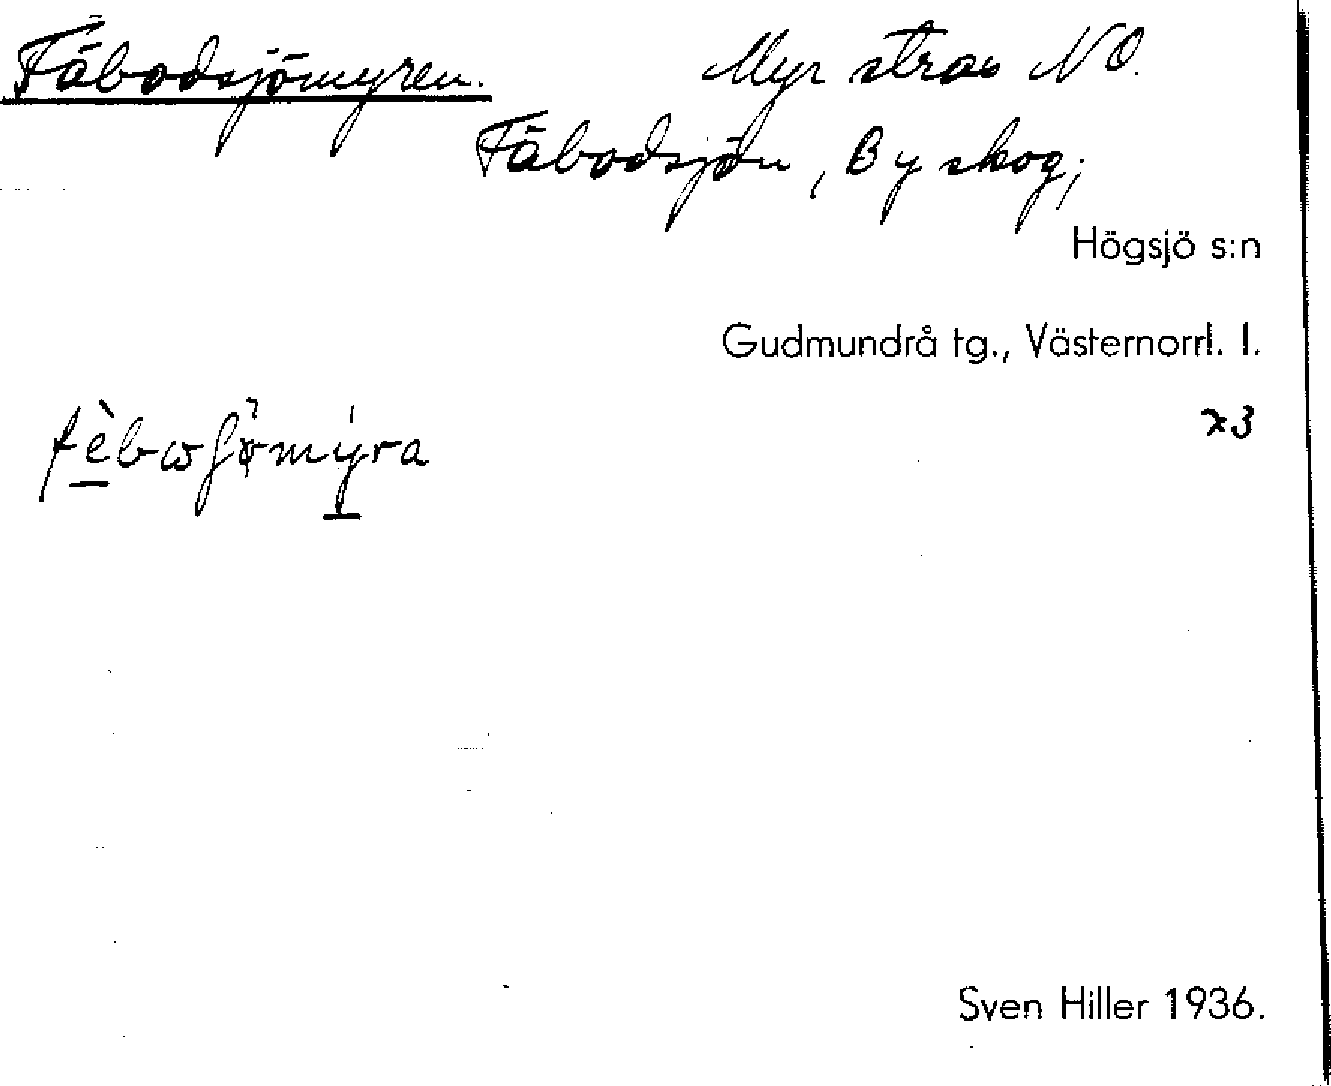 Fäbodsjömyren. Myr strax NO.
Fäbodsjön, By skog;
Högsjö s:n
Gudmundrå tg., Västernorrl. l.
x3
Sven Hiller 1936.